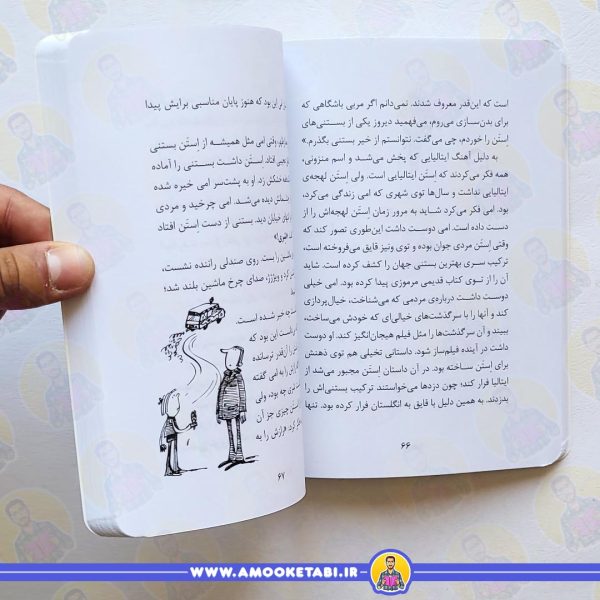 است که این‌قدر معروف شدند. نمی‌دانم اگر مربی باشگاهی که
برای بدن‌سازی می‌روم، می‌فهمید دیروز یکی از بستنی‌های
اِستَن را خوردم، چی می‌گفت. نتوانستم از خیر بستنی بگذرم.»
به دلیل آهنگ ایتالیایی که پخش می‌شد و اسم منزونی،
همه فکر می‌کردند که اِستَن ایتالیایی است. ولی اِستَن لهجه‌ی
ایتالیایی نداشت و سال‌ها توی شهری که امی زندگی می‌کرد،
بود. امی فکر می‌کرد شاید به مرور زمان اِستَن لهجه‌اش را از
دست داده است. امی دوست داشت این‌طوری تصور کند که
وقتی اِستَن مردی جوان بوده و توی ونیز قایق می‌فروخته است،
ترکیب سری بهترین بستنی جهان را کشف کرده است. شاید
آن را از توی کتاب قدیمی مرموزی پیدا کرده بود. امی خیلی
دوست داشت درباره‌ی مردمی که می‌شناخت، خیال‌پردازی
کند و آنها را با سرگذشت‌های خیالی‌ای که خودش می‌ساخت،
ببیند و آن سرگذشت‌ها را مثل فیلم هیجان‌انگیز کند. او دوست
داشت در آینده فیلم‌ساز شود. داستانی تخیلی هم توی ذهنش
برای اِستَن ساخته بود. در آن داستان اِستَن مجبور می‌شد از
ایتالیا فرار کند؛ چون دزدها می‌خواستند ترکیب بستنی‌اش را
بدزدند. به همین دلیل با قایق به انگلستان فرار کرده بود. تنها
۶۶
این بود که هنوز پایان مناسبی برایش پیدا
وقتی امی مثل همیشه از اِستَن بستنی
افتاد. اِستَن داشت بستنی را آماده
خشکش زد. او به پشت‌سر امی خیره شده
دیده می‌شد. امی چرخید و مردی
خیابان دید. بستنی از دست اِستَن افتاد
را بست. روی صندلی راننده نشست،
و ویژژژ؛ صدای چرخ ماشین بلند شد؛
خبر شده است.
این بود که
را آن‌قدر ترسانده
را به امی گفته
چه بود، ولی
اِستَن چیزی جز آن
کرد، فرارش را به
۶۷
WWW.AMOOKETABI.IR